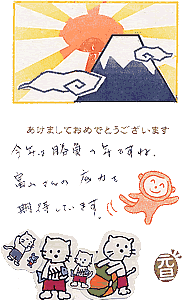 あけましておめでとうございます
今年は勝負の年ですね。
富山さんの底力を
期待しています。
元旦